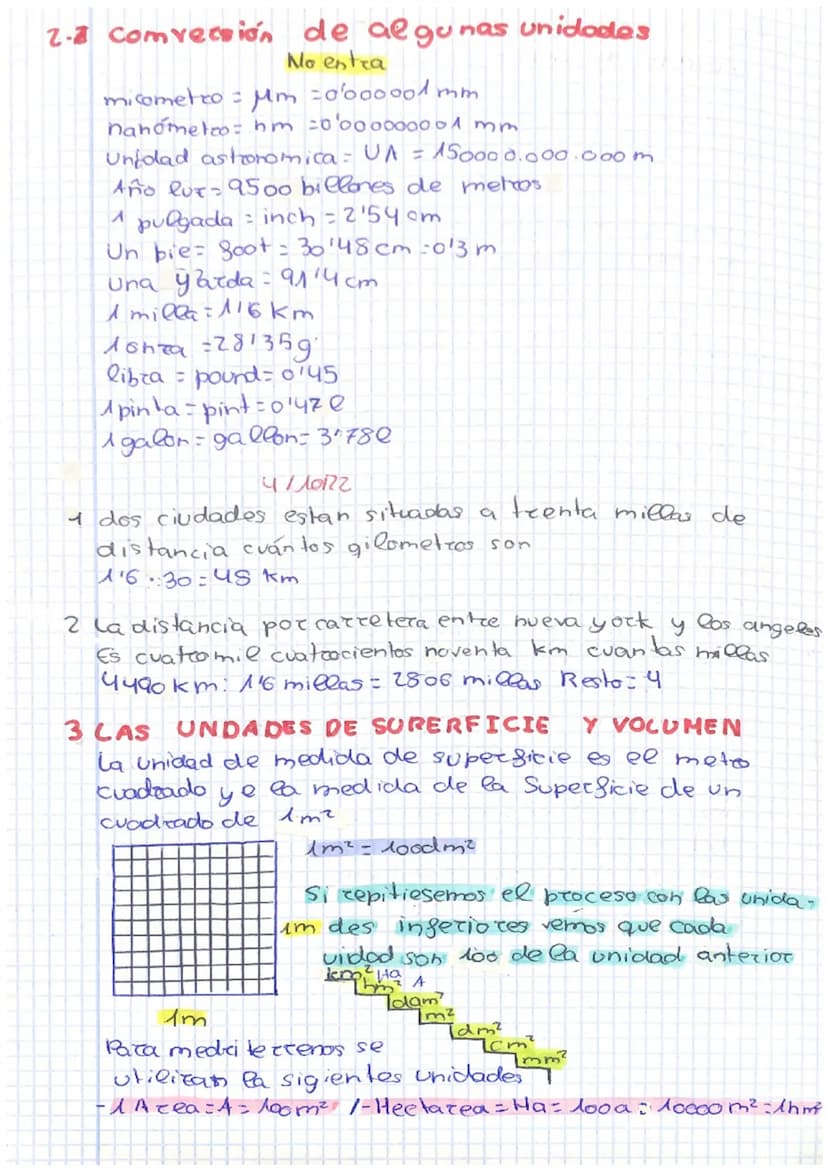 2.2 comvección de algunas unidades
No entra
micometro = µm = 0'000001 mm
nanómetro = nm = 0'000000001 mm
Unidad astronomica = UA = 150000.000.000 m
Año luz = 9500 billones de metros
1 pulgada = inch = 2'54 cm
Un bie = foot = 30'48 cm = 0'3 m
una yarda = 91'4 cm
1 milla = 1'6 km
1 onza = 28'35 g
libra = pound = 0'45
1 pinta = pint = 0'47 l
1 galon = gallon = 3'78 l
4/10/22
1 dos ciudades estan situadas a trenta millas de
distancia cuántos gilometros son
1'6 · 30 = 48 km
2 La distancia por carretera entre nueva york y los angeles
Es cuatromil cuatrocientos noventa km cuantas millas
4490 km : 1'6 millas = 2806 millas Resto = 4
3 LAS UNDADES DE SUPERFICIE Y VOLUMEN
La unidad de medida de superficie es el metro
cuadrado y e la medida de la Superficie de un
cuadrado de 1 m²
1m² = 100dm²
Si repitiesemos el proceso con las unida-
1m des inferiores vemos que cada
vidad son 100 de la unidad anterior
km² Ha
hm² A
dam²
m²
1m
dm²
cm²
mm²
Para medri terrenos se
utilizan la sigientes unidades
- 1 Area = A = 100m² /- Hectarea = Ha = 100a = 10000 m² = 1hm²